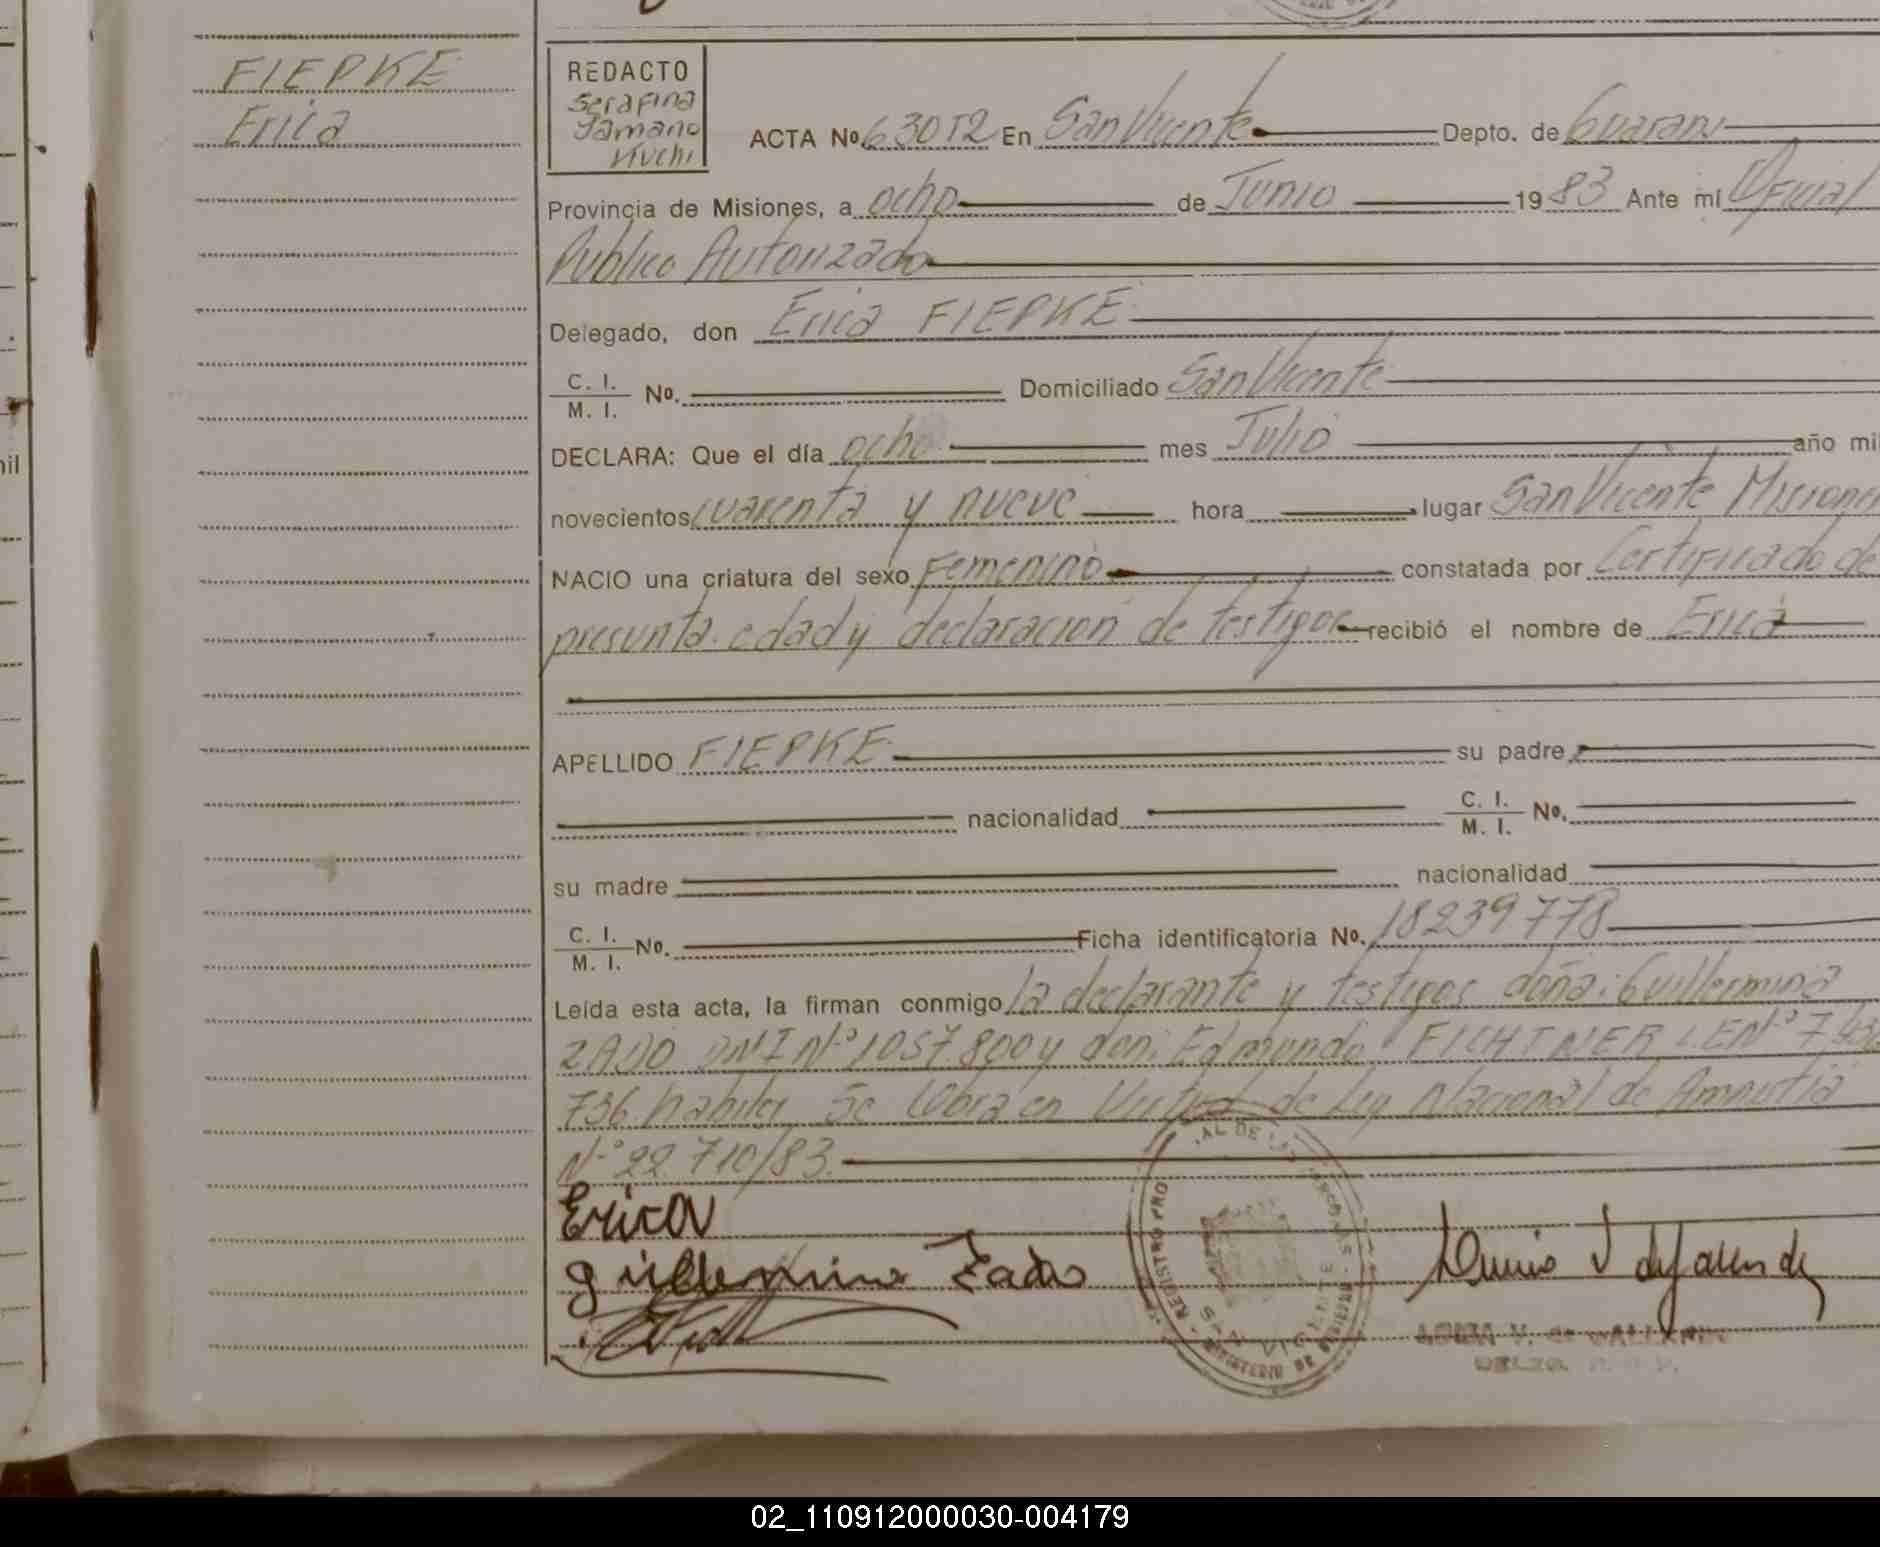 FIEPKE
Erica
REDACTO
Serafina
Yamano
Kuchi
ACTA No. 630T2 En San Vicente Depto. de Guarani
Provincia de Misiones, a ocho de Junio 19 83 Ante mi Oficial
Publico Autorizado
Delegado, don Erica FIEPKE
C. I.
M. I. No. Domiciliado San Vicente
DECLARA: Que el día ocho mes Julio año mil
nil
novecientos cuarenta y nueve hora lugar San Vicente Misiones
NACIO una criatura del sexo Femenino constatada por Certificado de
presunta edad y declaracion de testigos recibió el nombre de Erica
APELLIDO FIEPKE su padre
nacionalidad C. I.
M. I. No.
su madre nacionalidad
C. I.
M. I. No. Ficha identificatoria No. 18239778
Leída esta acta, la firman conmigo la declarante y testigos doña: Guillermina
ZADO DNI Nº 1057.800 y don: Edmundo FICHTNER L.E Nº 7.43
736 habiles Se Obra en Virtud de Ley Nacional de Amnistia
Nº 22.710/83.
Erica
guillermina Zado
REGISTRO PRO AL DE LAS PERSONAS - MINISTERIO DE GOBIERNO -
SAN VICENTE